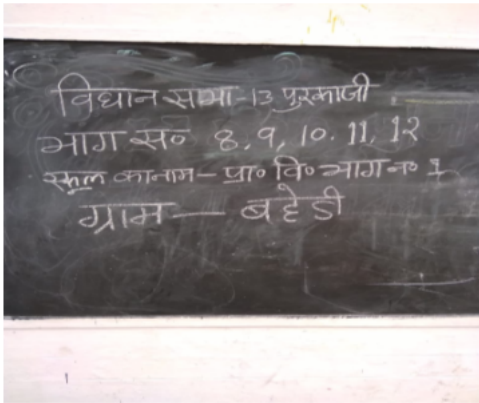 विधान सभा-13 पुरकाजी
भाग स० 8, 9, 10. 11, 12
स्कूल का नाम - प्रा० वि० भाग न० 1
ग्राम — बहेडी